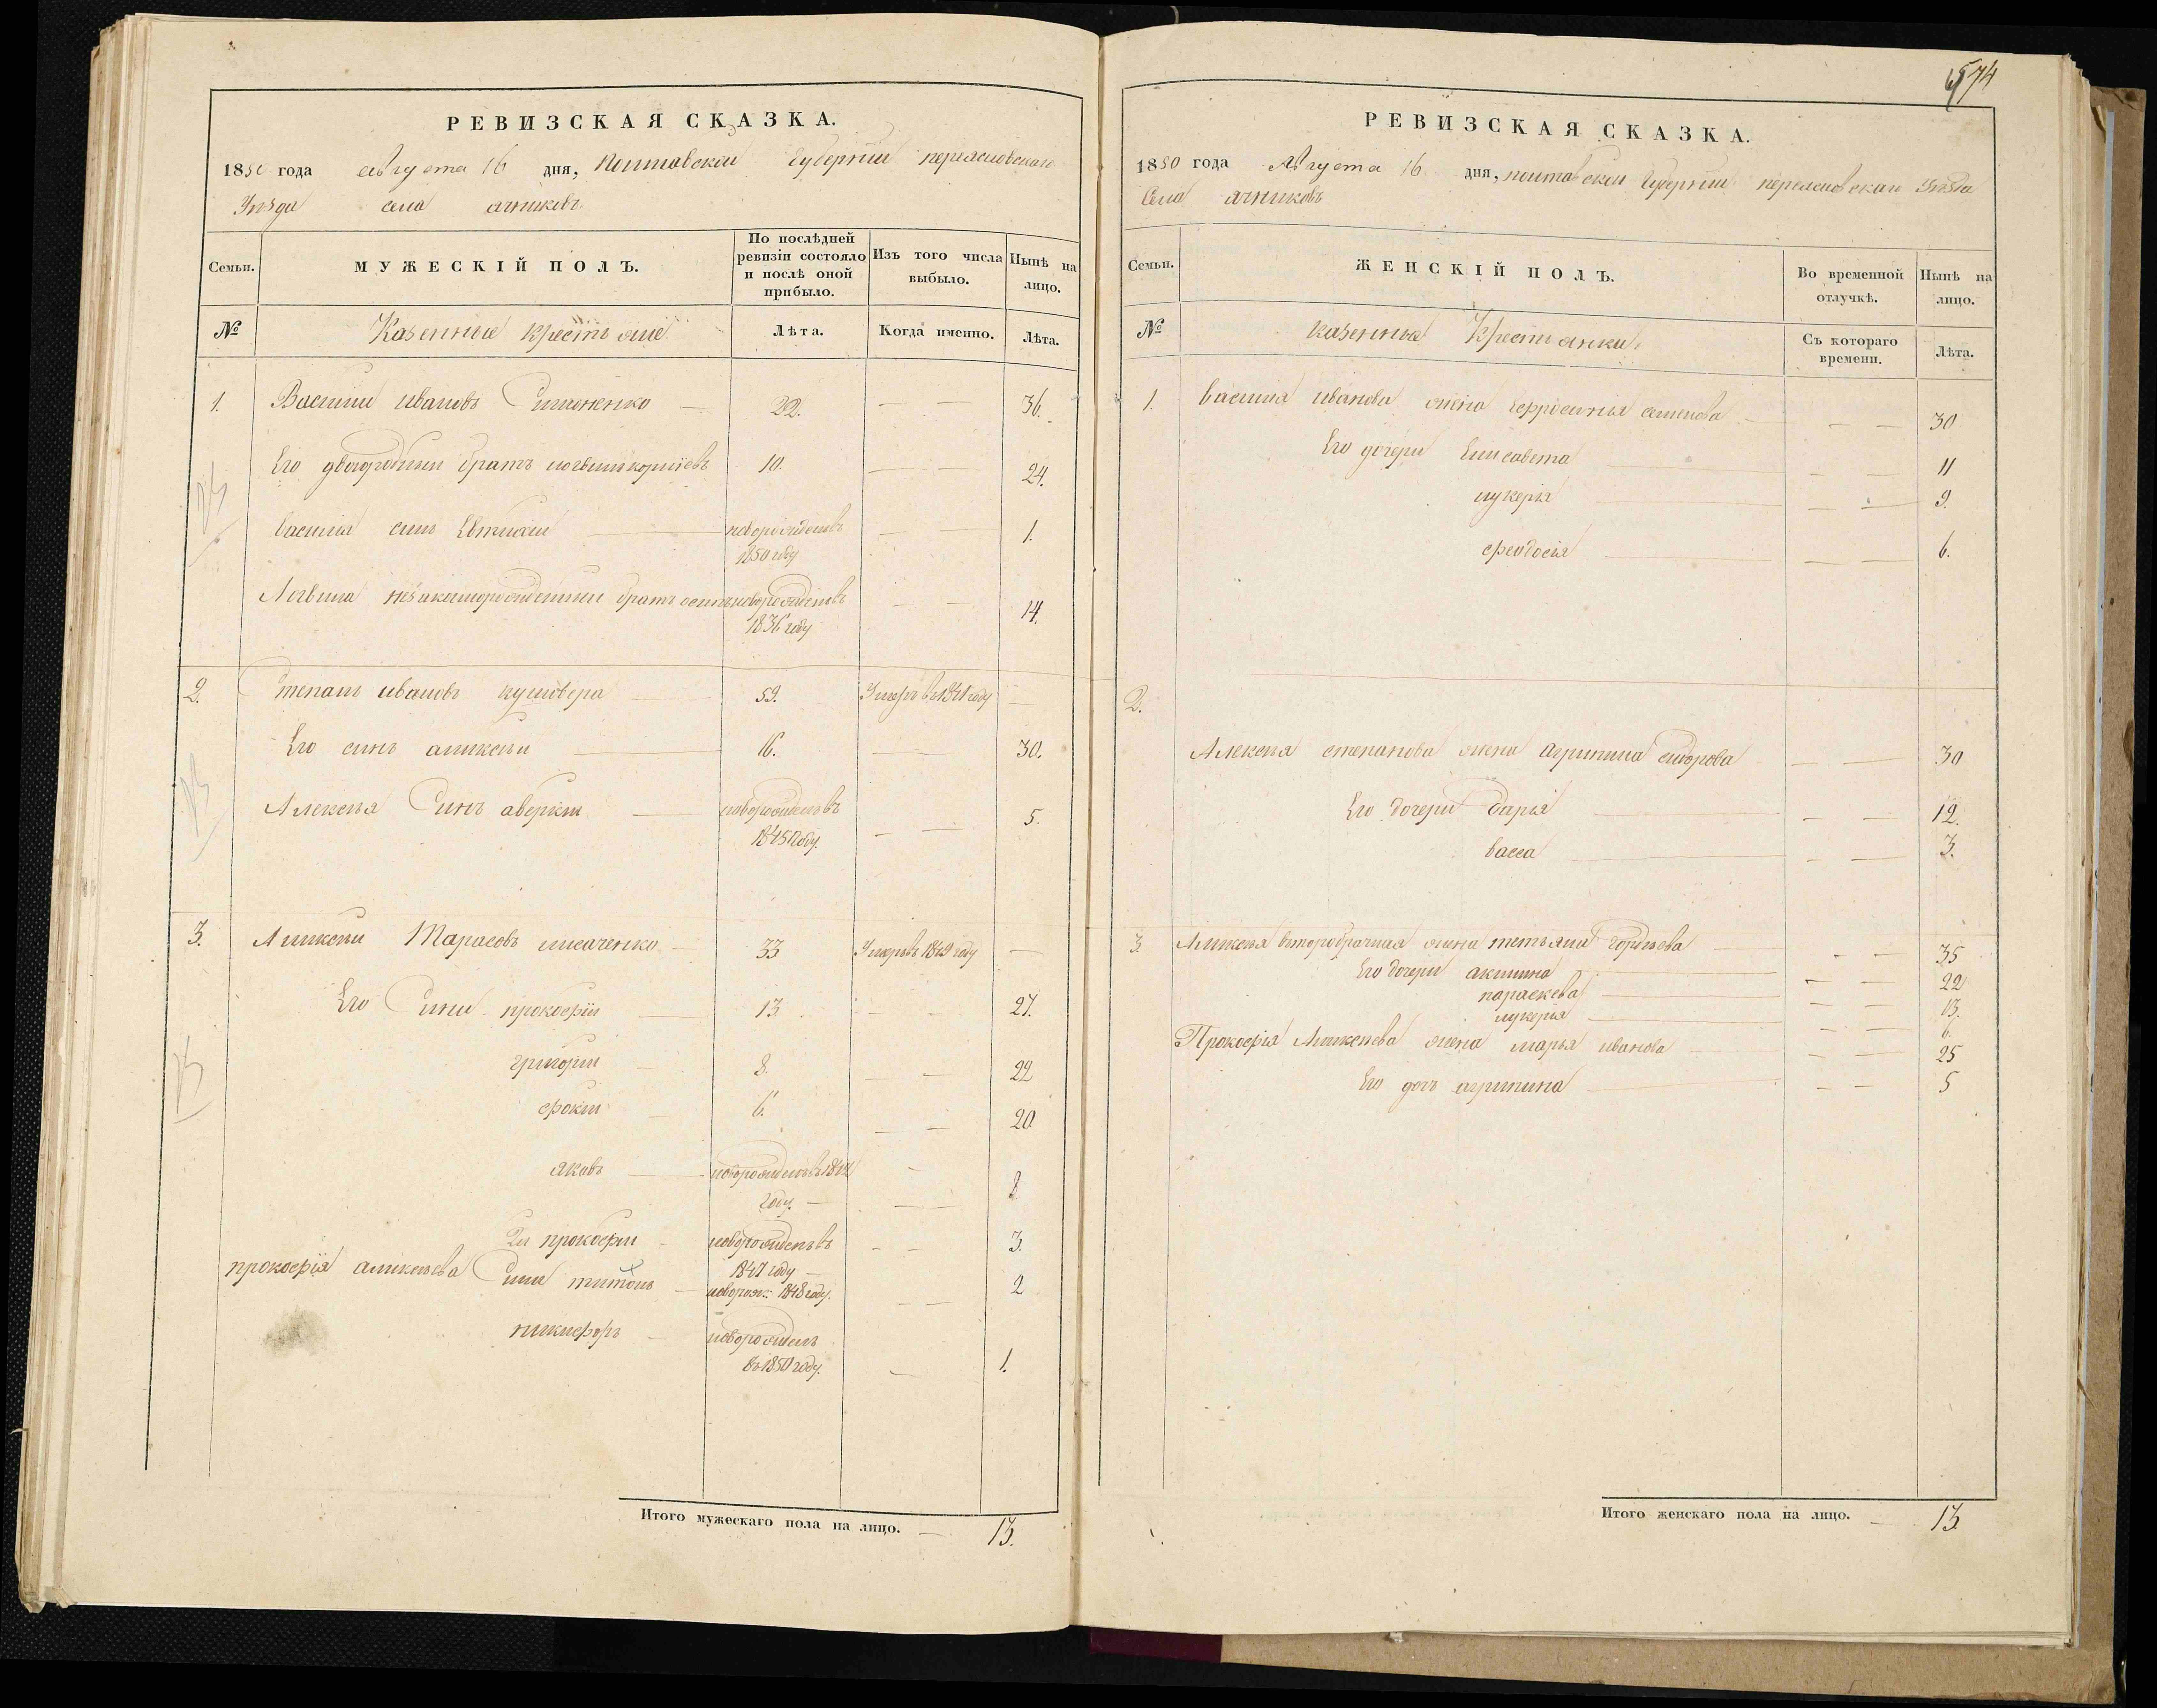 РЕВИЗСКАЯ СКАЗКА.
1850 года августа 16 дня, Полтавской губернии переясловскаго
Уѣзда села ячниковъ
Семьи.
МУЖЕСКІЙ ПОЛЪ.
По послѣдней ревизіи состояло и послѣ оной прибыло.
Изъ того числа выбыло.
Нынѣ на лицо.
№
Казенные крестьяне
Лѣта.
Когда именно.
Лѣта.
1. Василий ивановъ Симоненко 22. 36.
Его двоюродный братъ логвин корніевъ 10. 24.
василія синъ Евтихий новорожденъ въ 1850 году 1.
Логвина братъ новорожденъ въ 1836 году 14.
2. Степанъ ивановъ 59. Умеръ въ 1841 году
Его синъ алексѣи 16. 30.
Алексѣя Синъ аверкии новорожденъ въ 1845 году. 5.
3. Алексѣи Тарасовъ лисаченко 33 Умеръ въ 1849 году
Его Сини прокофіи 13. 27.
григории 8. 22
фокии 6. 20
яковъ новорожденъ въ 1842 году. 8
2й прокофии новорожденъ въ 1847 году 3.
прокофія алексѣева Сини титонъ новорож: 1848 году. 2
никифоръ новорожденъ въ 1850 году. 1.
Итого мужескаго пола на лицо. 13.
574
РЕВИЗСКАЯ СКАЗКА.
1850 года Августа 16 дня, полтавской Губернии переясловскаго Уѣзда
Села ячниковъ
Семьи.
ЖЕНСКІЙ ПОЛЪ.
Во временной отлучкѣ.
Нынѣ на лицо.
№
казенныя Крестьянки
Съ котораго времени.
Лѣта.
1. василія иванова жена еффросинья семенова 30
Его дочери Елисавета 11
лукерія 9.
феодосія 6.
2.
Алексѣя степанова жена агрипина сидорова 30
Его дочери дарья 12.
васса 3.
3. Алексѣя второбрачная жена татьяна гордѣева 35
Его дочери акилина 22
параскева 13.
лукерья 6.
Прокофія Алексѣева жена марья иванова 25
Его дочь агрипина 5
Итого женскаго пола на лицо. 13.